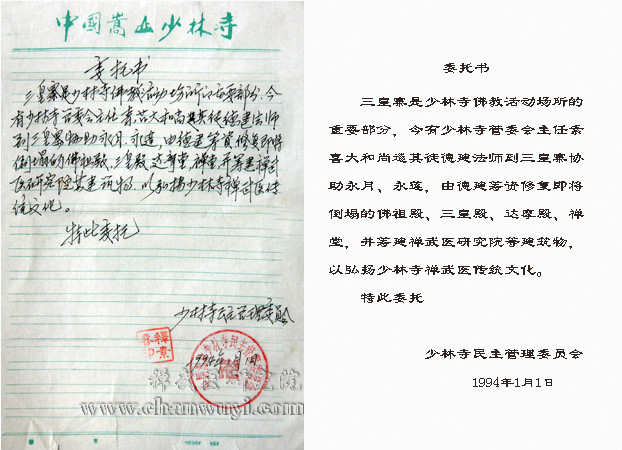 中國嵩山少林寺
委托书
三皇寨是少林寺佛教活动场所的重要部分,今
有少林寺管委会主任素喜大和尚遣其徒德建法师
到三皇寨协助永月、永莲,由德建筹资修复即将
倒塌的佛祖殿、三皇殿、达摩堂、禅堂,并筹建禅武
医研究院等建筑物,以弘扬少林寺禅武医传
统文化。
特此委托
少林寺民主管理委员会
釋素
喜印
1994年1月1日
www.chanwuyi.com
委托书
三皇寨是少林寺佛教活动场所的
重要部分，今有少林寺管委会主任素
喜大和尚遣其徒德建法师到三皇寨协
助永月、永莲，由德建筹资修复即将
倒塌的佛祖殿、三皇殿、达摩殿、禅
堂，并筹建禅武医研究院等建筑物，
以弘扬少林寺禅武医传统文化。
特此委托
少林寺民主管理委员会
1994年1月1日